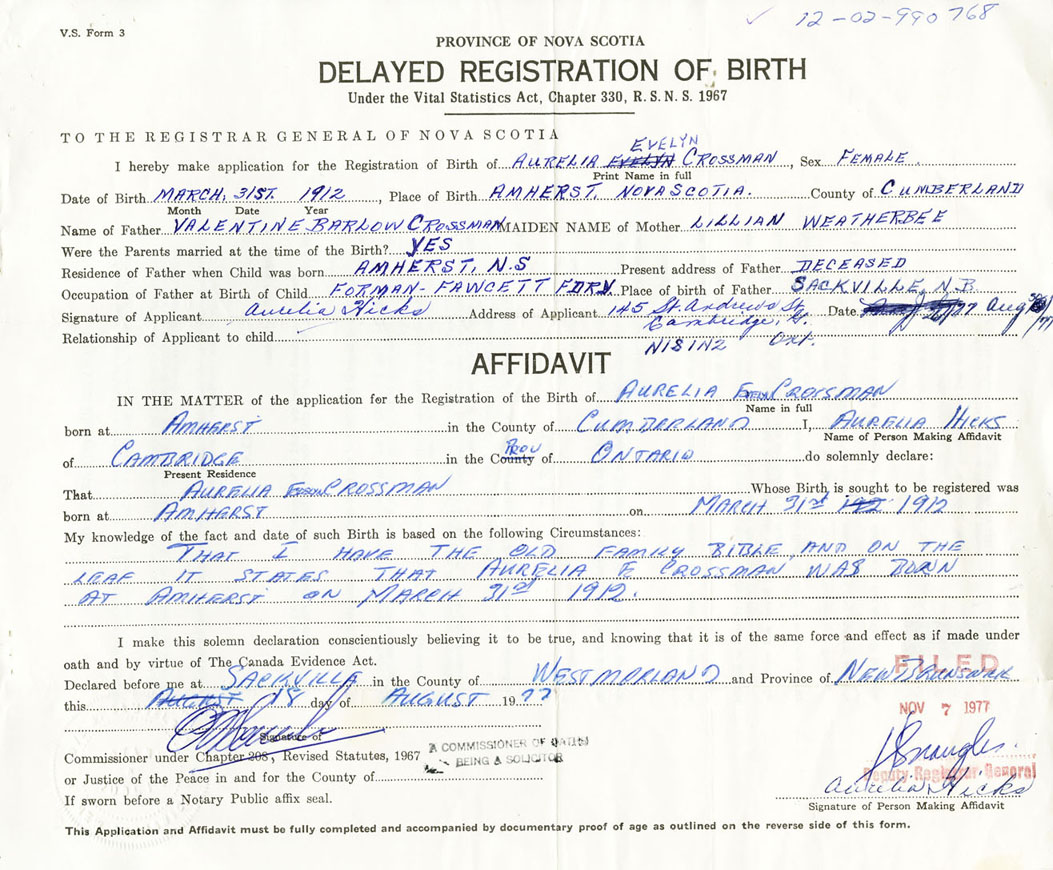 12-02-990768
V.S. Form 3
PROVINCE OF NOVA SCOTIA
DELAYED REGISTRATION OF BIRTH
Under the Vital Statistics Act, Chapter 330, R. S. N. S. 1967
TO THE REGISTRAR GENERAL OF NOVA SCOTIA
EVELYN
I hereby make application for the Registration of Birth of AURELIA EVELYN CROSSMAN, Sex FEMALE
Print Name in full
Date of Birth MARCH, 31ST. 1912, Place of Birth AMHERST, NOVA SCOTIA. County of CUMBERLAND
Month Date Year
Name of Father VALENTINE BARLOW CROSSMAN MAIDEN NAME of Mother LILLIAN WEATHERBEE
Were the Parents married at the time of the Birth? YES
Residence of Father when Child was born AMHERST, N.S Present address of Father DECEASED
Occupation of Father at Birth of Child FORMAN-FAWCETT FDRY. Place of birth of Father SACKVILLE, N.B.
Signature of Applicant Aurelia Hicks Address of Applicant 145 St. Andrews St. Date Aug
Cambridge,
Relationship of Applicant to child
N1S1N2 Ont.
AFFIDAVIT
IN THE MATTER of the application for the Registration of the Birth of AURELIA EVELYN CROSSMAN
Name in full
born at AMHERST in the County of CUMBERLAND I, AURELIA HICKS
Name of Person Making Affidavit
PROV
of CAMBRIDGE in the County of ONTARIO do solemnly declare:
Present Residence
That AURELIA EVELYN CROSSMAN Whose Birth is sought to be registered was
born at AMHERST on MARCH 31st 1912
My knowledge of the fact and date of such Birth is based on the following Circumstances:
THAT I HAVE THE OLD FAMILY BIBLE AND ON THE
LEAF IT STATES THAT AURELIA E CROSSMAN WAS BORN
AT AMHERST ON MARCH 31st 1912.
I make this solemn declaration conscientiously believing it to be true, and knowing that it is of the same force and effect as if made under
oath and by virtue of The Canada Evidence Act.
FILED
Declared before me at SACKVILLE in the County of WESTMORLAND and Province of NEW BRUNSWICK
this 18 day of AUGUST 1977
NOV 7 1977
Signature of
Commissioner under Chapter 208, Revised Statutes, 1967 A COMMISSIONER OF OATHS
BEING A SOLICITOR
or Justice of the Peace in and for the County of
Deputy Registrar General
Aurelia Hicks
If sworn before a Notary Public affix seal.
Signature of Person Making Affidavit
This Application and Affidavit must be fully completed and accompanied by documentary proof of age as outlined on the reverse side of this form.